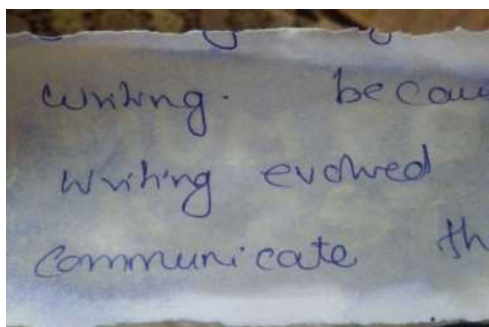 writing. becau
writing evolved
communicate th